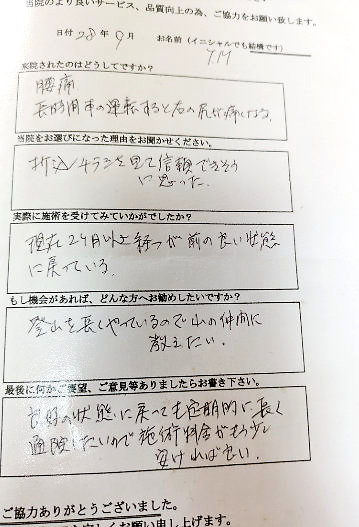 当院のより良いサービス、品質向上の為、ご協力をお願い致します。
日付 28年 9月 お名前(イニシャルでも結構です)
Y.M
来院されたのはどうしてですか?
腰痛
長時間車の運転すると右の尻が痛くなる。
当院をお選びになった理由をお聞かせください。
折込チラシを見て信頼できそう
に思った。
実際に施術を受けてみていかがでしたか?
現在2ヶ月以上経つが前の良い状態
に戻っている。
もし機会があれば、どんな方へお勧めしたいですか?
登山を長くやっているので山の仲間に
教えたい。
最後に何かご要望、ご意見等ありましたらお書き下さい。
良好の状態に戻っても定期的に長く
通院したいので施術料金がもう少し
安ければ良い。
ご協力ありがとうございました。
お願い申し上げます。